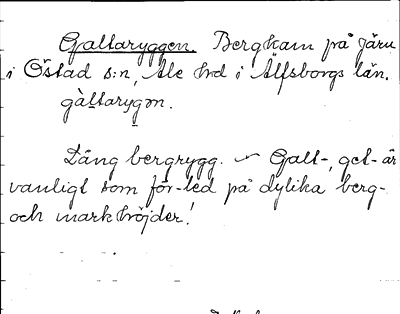 Galtaryggen. Bergkam på Järn
i Östad s:n, Ale hrd i Älfsborgs län.
gàltarygən.
Lång bergrygg. Galt-, get- är
vanligt som för-led på dylika berg-
och markhöjder!